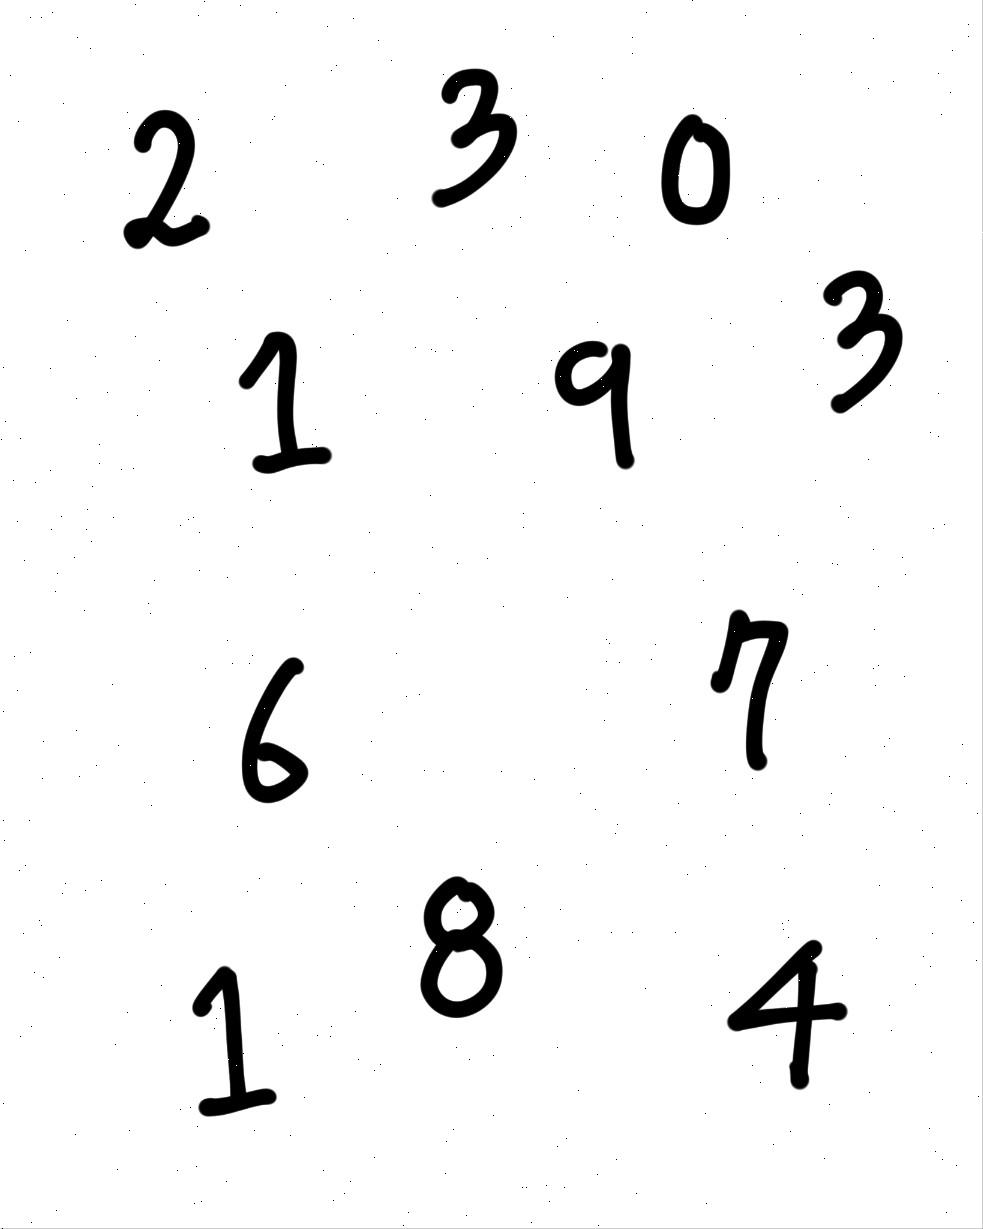 2 3 0
1 9 3
6 7
1 8 4